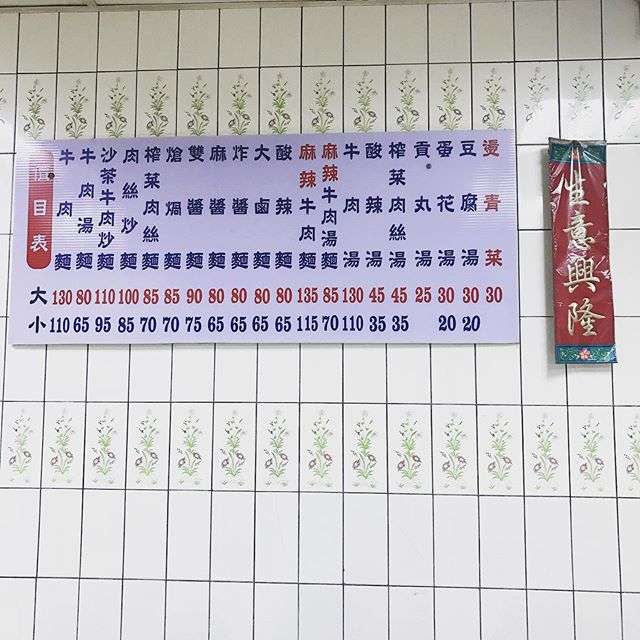 目表
牛肉麵
牛肉湯麵
沙茶牛肉炒麵
肉絲炒麵
榨菜肉絲麵
熗麵
雙醬麵
麻醬麵
炸醬麵
大滷麵
酸辣麵
麻辣牛肉麵
麻辣牛肉湯麵
牛肉湯
酸辣湯
榨菜肉絲湯
貢丸湯
蛋花湯
豆腐湯
燙青菜
大 130 80 110 100 85 85 90 80 80 80 80 135 85 130 45 45 25 30 30 30
小 110 65 95 85 70 70 75 65 65 65 65 115 70 110 35 35 20 20
生意興隆